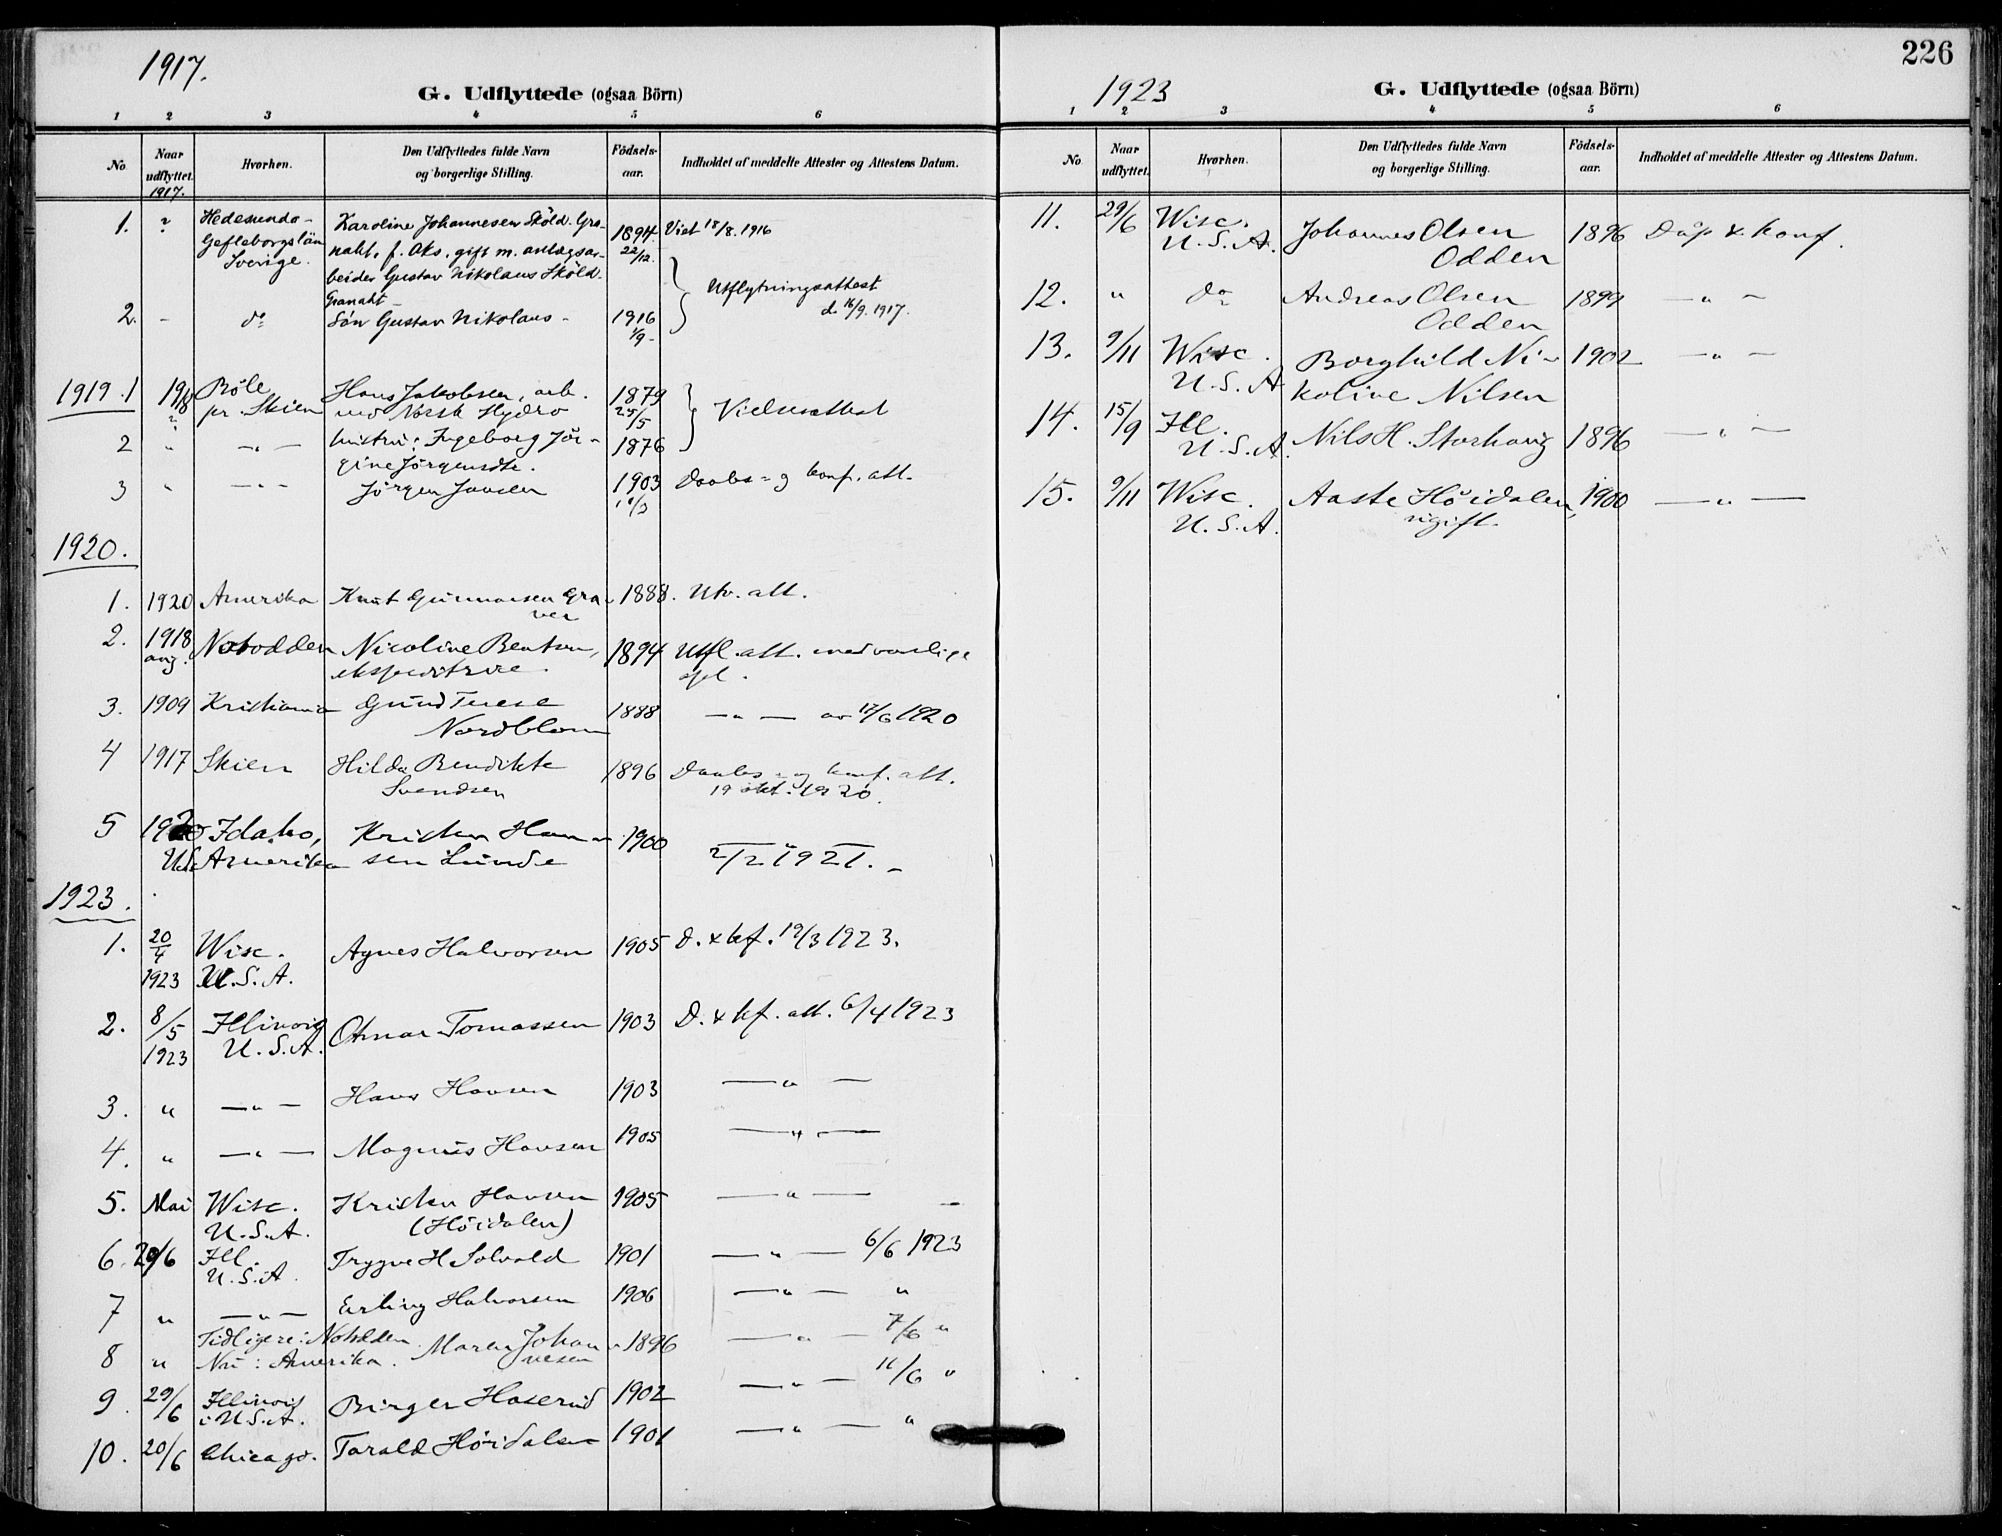 1917.
G. Udflyttede (ogsaa Börn)
1 2 3 4 5 6
No. Naar udflyttet. Hvorhen. Den Udflyttedes fulde Navn og borgerlige Stilling. Födsels-aar. Indholdet af meddelte Attester og Attestens Datum.
1917.
1. ? Hedesunda- Karoline Johannesen Sköld. Gra- 1894 Viet 18/8. 1916
Gefleborgslän naht, f. Aks, gift m. anlægsar- 22/12.
Sverige. beider Gustav Nikolaus Sköld. Utflytningsattest
Granaht - d. 16/9. 1917.
2. - do Sön Gustav Nikolaus - 1916
1/9-
1919. 1 19/8 Böle Hans Jakobsen, arb. 1879
? pr. Skien ved Norsk Hydro 25/5 Vielsesattest
2 " -"- hustru: Ingeborg Jör- 1876
gine Jörgensdtr.
3 " -"- Jörgen Jansen 1903 Daabs- og konf. att.
1920.
1. 1920 Amerika Knut Gunnarsen Gra- 1888. Utv. att.
ver
2. 1918 Notodden Nicoline Bentsen, 1894 Utfl. att. med vanlige
aug. ekspeditrice.
3. 1909 Kristiania Gund Terese 1888 -"- av 17/6 1920
Nordblom
4 1917 Skien Hilda Bendikte 1896 Daabs- og konf. att.
Svendsen 19 okt. 1920.
5 1920 Idaho, Kristen Han- 1900 -"-
Amerika sen Lunde 2/2 1921. -
1923.
1. 20/4 Wisc. Agnes Halvorsen 1905 D. & kf. 19/3 1923.
1923 U.S.A.
2. 8/5 Illinois Otmar Tomassen 1903 D. & kf. att. 6/4 1923
1923 U.S.A.
3. " -"- Hans Hansen 1903 -"-
4. " -"- Magnus Hansen 1905 -"-
5. Mai Wisc. Kristen Hansen 1905 -"- -
U.S.A. (Höidalen)
6. 20/6 Ill. Trygve H. Solvold 1901 -"- 6/6 1923
U.S.A.
7 " -"- Erling Halvorsen 1906 -"- "
8 " Tidligere: Notodden Maren Johan- 1896 -"- 7/6 "
Nu: Amerika. nesen
9. 29/6 Illinois Birger Haserud 1902 -"- 11/6 "
i U.S.A.
10. 20/6 Chicago. Tarald Höidalen 1901 -"- "
226
1923
G. Udflyttede (ogsaa Börn)
1 2 3 4 5 6
No Naar udflyttet. Hvorhen. Den Udflyttedes fulde Navn og borgerlige Stilling. Födsels-aar. Indholdet af meddelte Attester og Attestens Datum.
11. 29/6 Wisc. Johannes Olsen 1896 Dåp & konf.
U.S.A. Odden
12. " do Andreas Olsen 1899 -"-
Odden
13. 9/11 Wisc. Borghild Ni- 1902 -"-
U.S.A koline Nilsen
14. 15/9 Ill. Nils H. Storhaug 1896 -"-
U.S.A.
15. 9/11 Wisc. Aaste Höidalen, 1900 -"-
U.S.A. ugift.